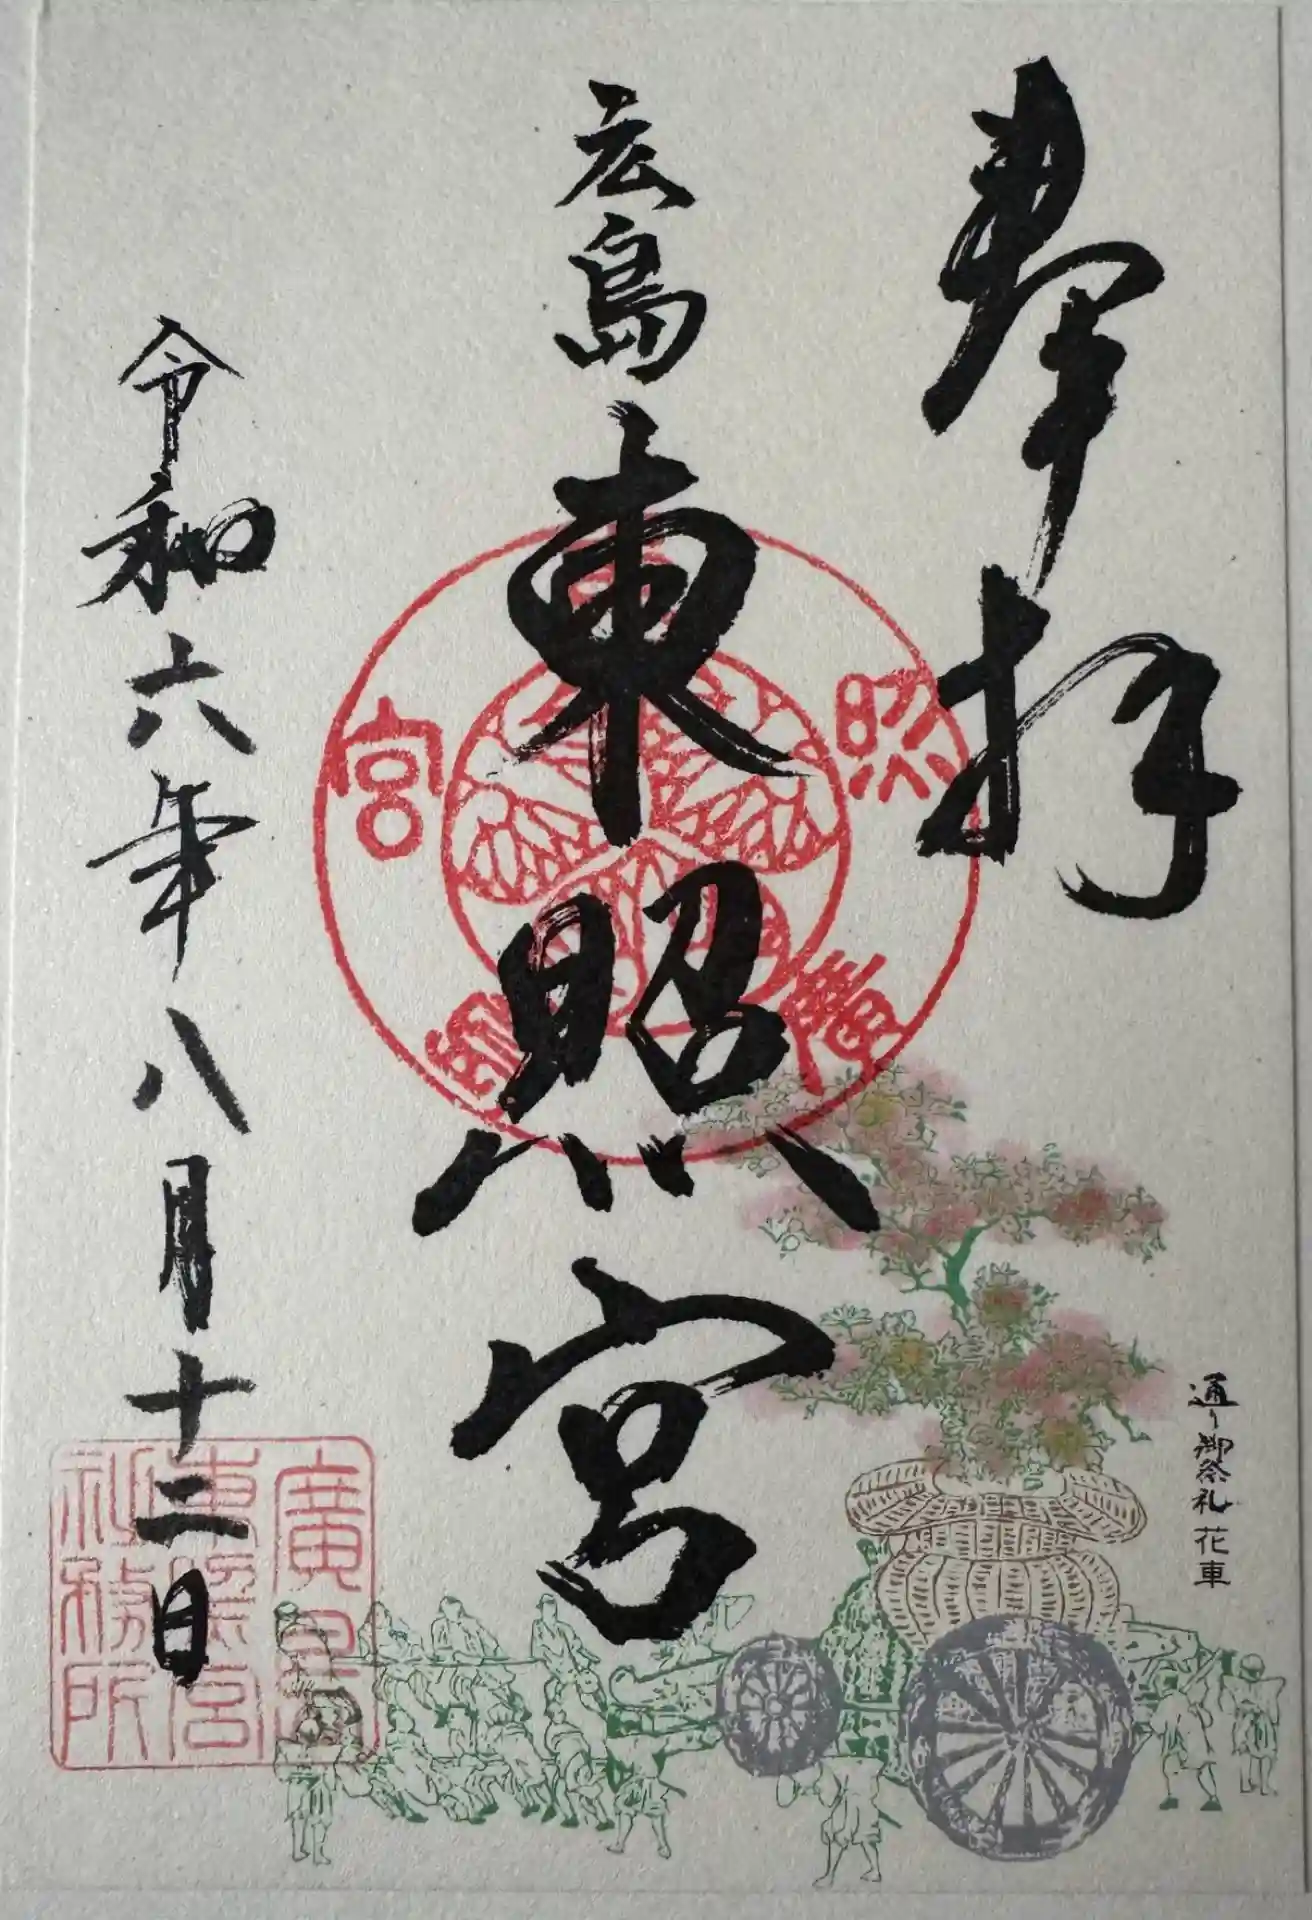 奉拝
広島
東照宮
令和六年八月十二日
通り御祭礼 花車
東照宮廣島
廣島
東照宮
社務所